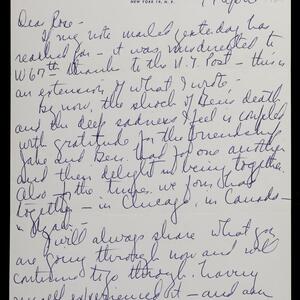 NEW YORK 19, N. Y.
Dear Rose -
If my note mailed yesterday has
reached you - it was misdirected to
W 67th thanks to the N.Y. Post - this is
an extension of what I wrote.
By now, the shock of Ben's death
and the deep sadness I feel is coupled
with gratitude for the friendship
and Ben had for one another
and their delight in being together.
Also - for the times we four had
together - in Chicago, in Canada -
I will always share what you
are going through now and will
continue to go through. Having
myself experienced it - and am